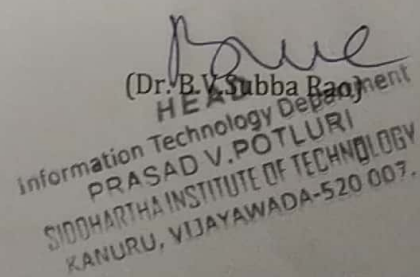 (Dr. B.V.Subba Rao)
HEAD
Information Technology Department
PRASAD V.POTLURI
SIDDHARTHA INSTITUTE OF TECHNOLOGY
KANURU, VIJAYAWADA-520 007.